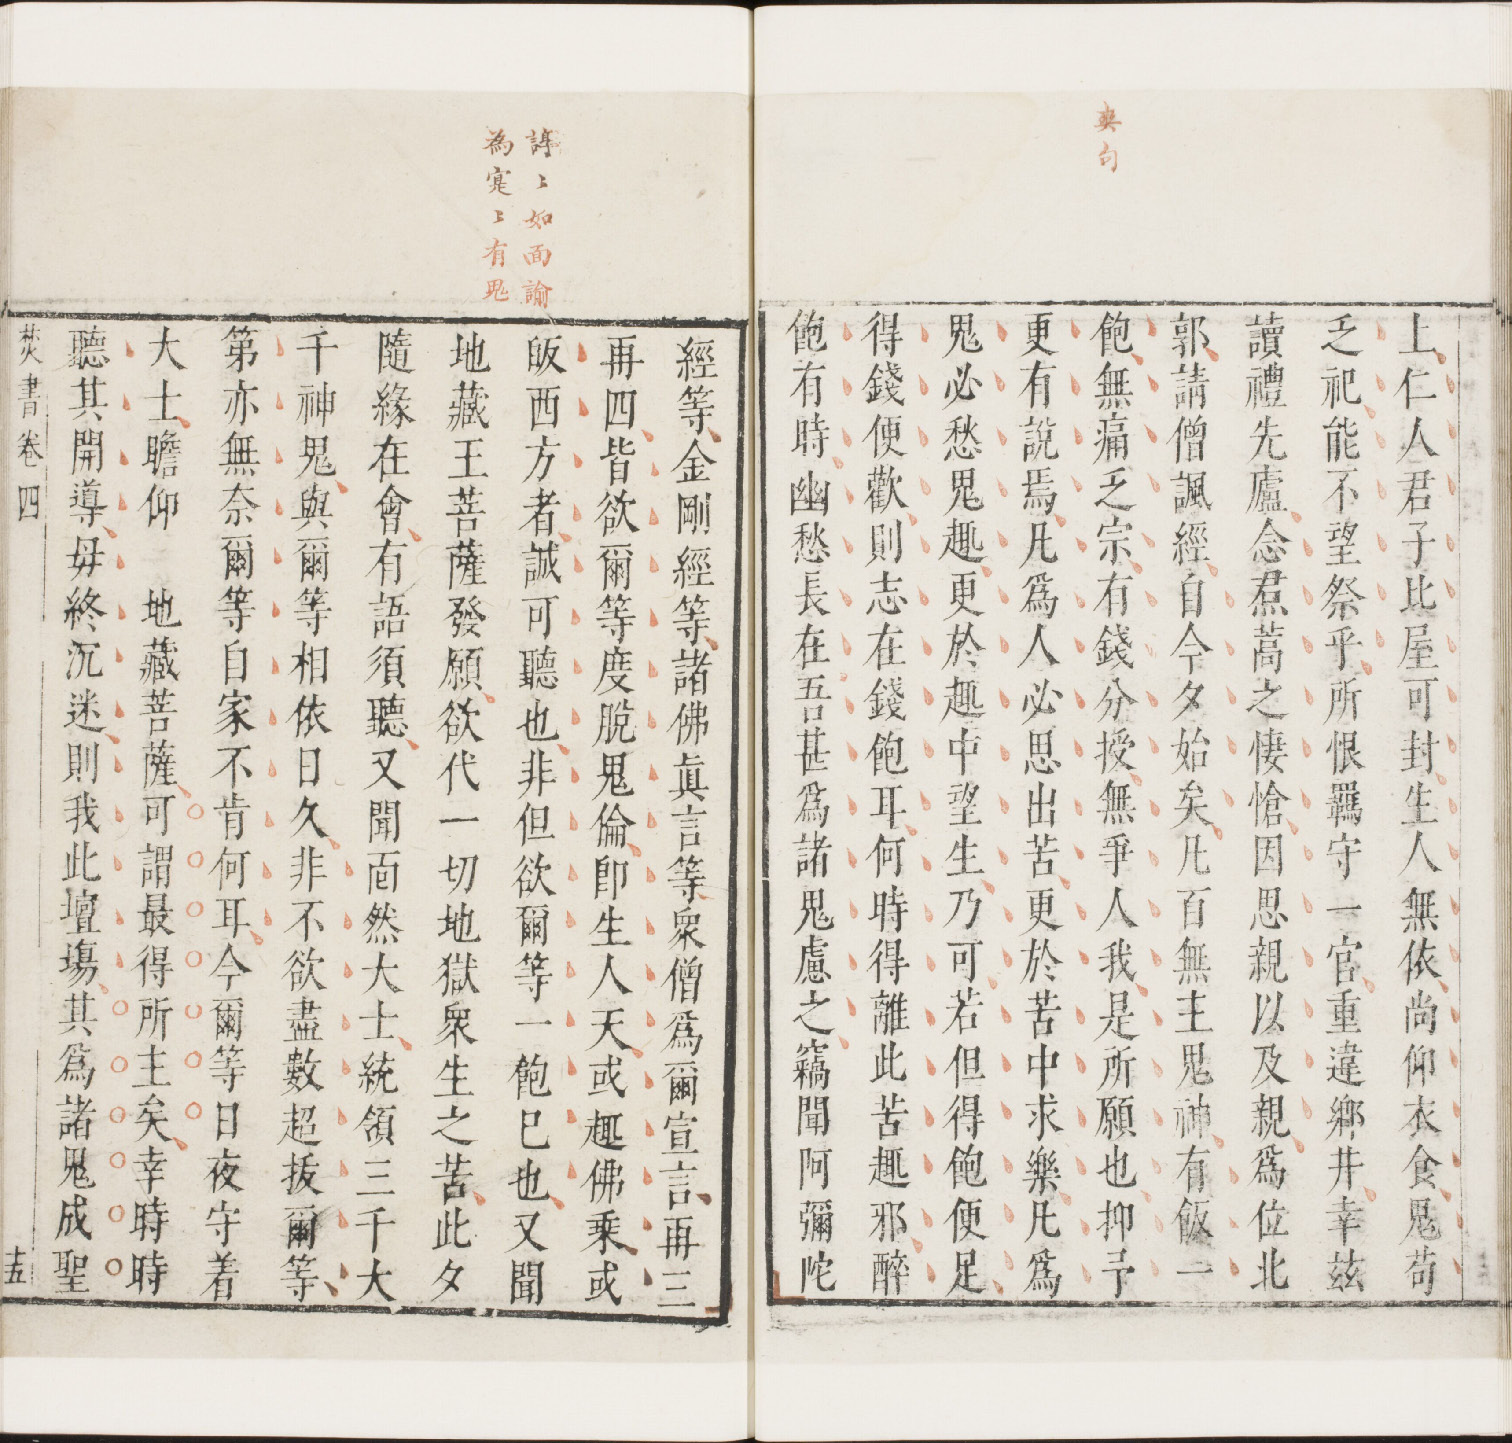 爽句
上仁人君子比屋可封生人無依尚仰衣食鬼苟
乏祀能不望祭乎所恨羈守一官重違鄉井幸兹
讀禮先廬念焄蒿之悽愴因思親以及親爲位北
郭請僧諷經自今夕始矣凡百無主鬼神有飯一
飽無痛乏宗有錢分授無爭人我是所願也抑予
更有說焉凡爲人必思出苦更於苦中求樂凡爲
鬼必愁鬼趣更於趣中望生乃可若但得飽便足
得錢便歡則志在錢飽耳何時得離此苦趣邪醉
飽有時幽愁長在吾甚爲諸鬼慮之竊聞阿彌陀
諄〻如面諭
為寔〻有鬼
經等金剛經等諸佛眞言等衆僧爲爾宣言再三
再四皆欲爾等度脫鬼倫卽生人天或趣佛乘或
皈西方者誠可聽也非但欲爾等一飽已也又聞
地藏王菩薩發願欲代一切地獄衆生之苦此夕
隨緣在會有語須聽又聞面然大士統領三千大
千神鬼與爾等相依日久非不欲盡數超拔爾等
第亦無奈爾等自家不肯何耳今爾等日夜守着
大士瞻仰 地藏菩薩可謂最得所主矣幸時時
聽其開導毋終沉迷則我此壇塲其爲諸鬼成聖
焚書卷四
十五